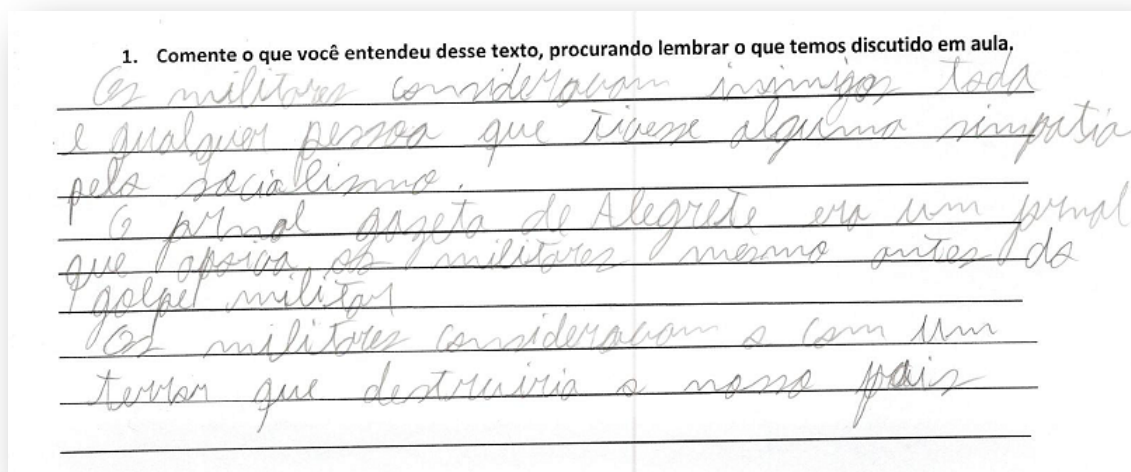 1. Comente o que você entendeu desse texto, procurando lembrar o que temos discutido em aula.
Os militares consideravam inimigos toda
e qualquer pessoa que tivesse alguma simpatia
pelo socialismo.
O jornal gazeta de Alegrete era um jornal
que apoiava os militares mesmo antes do
golpe militar
Os militares consideravam o com um
terror que destruiria o nosso país